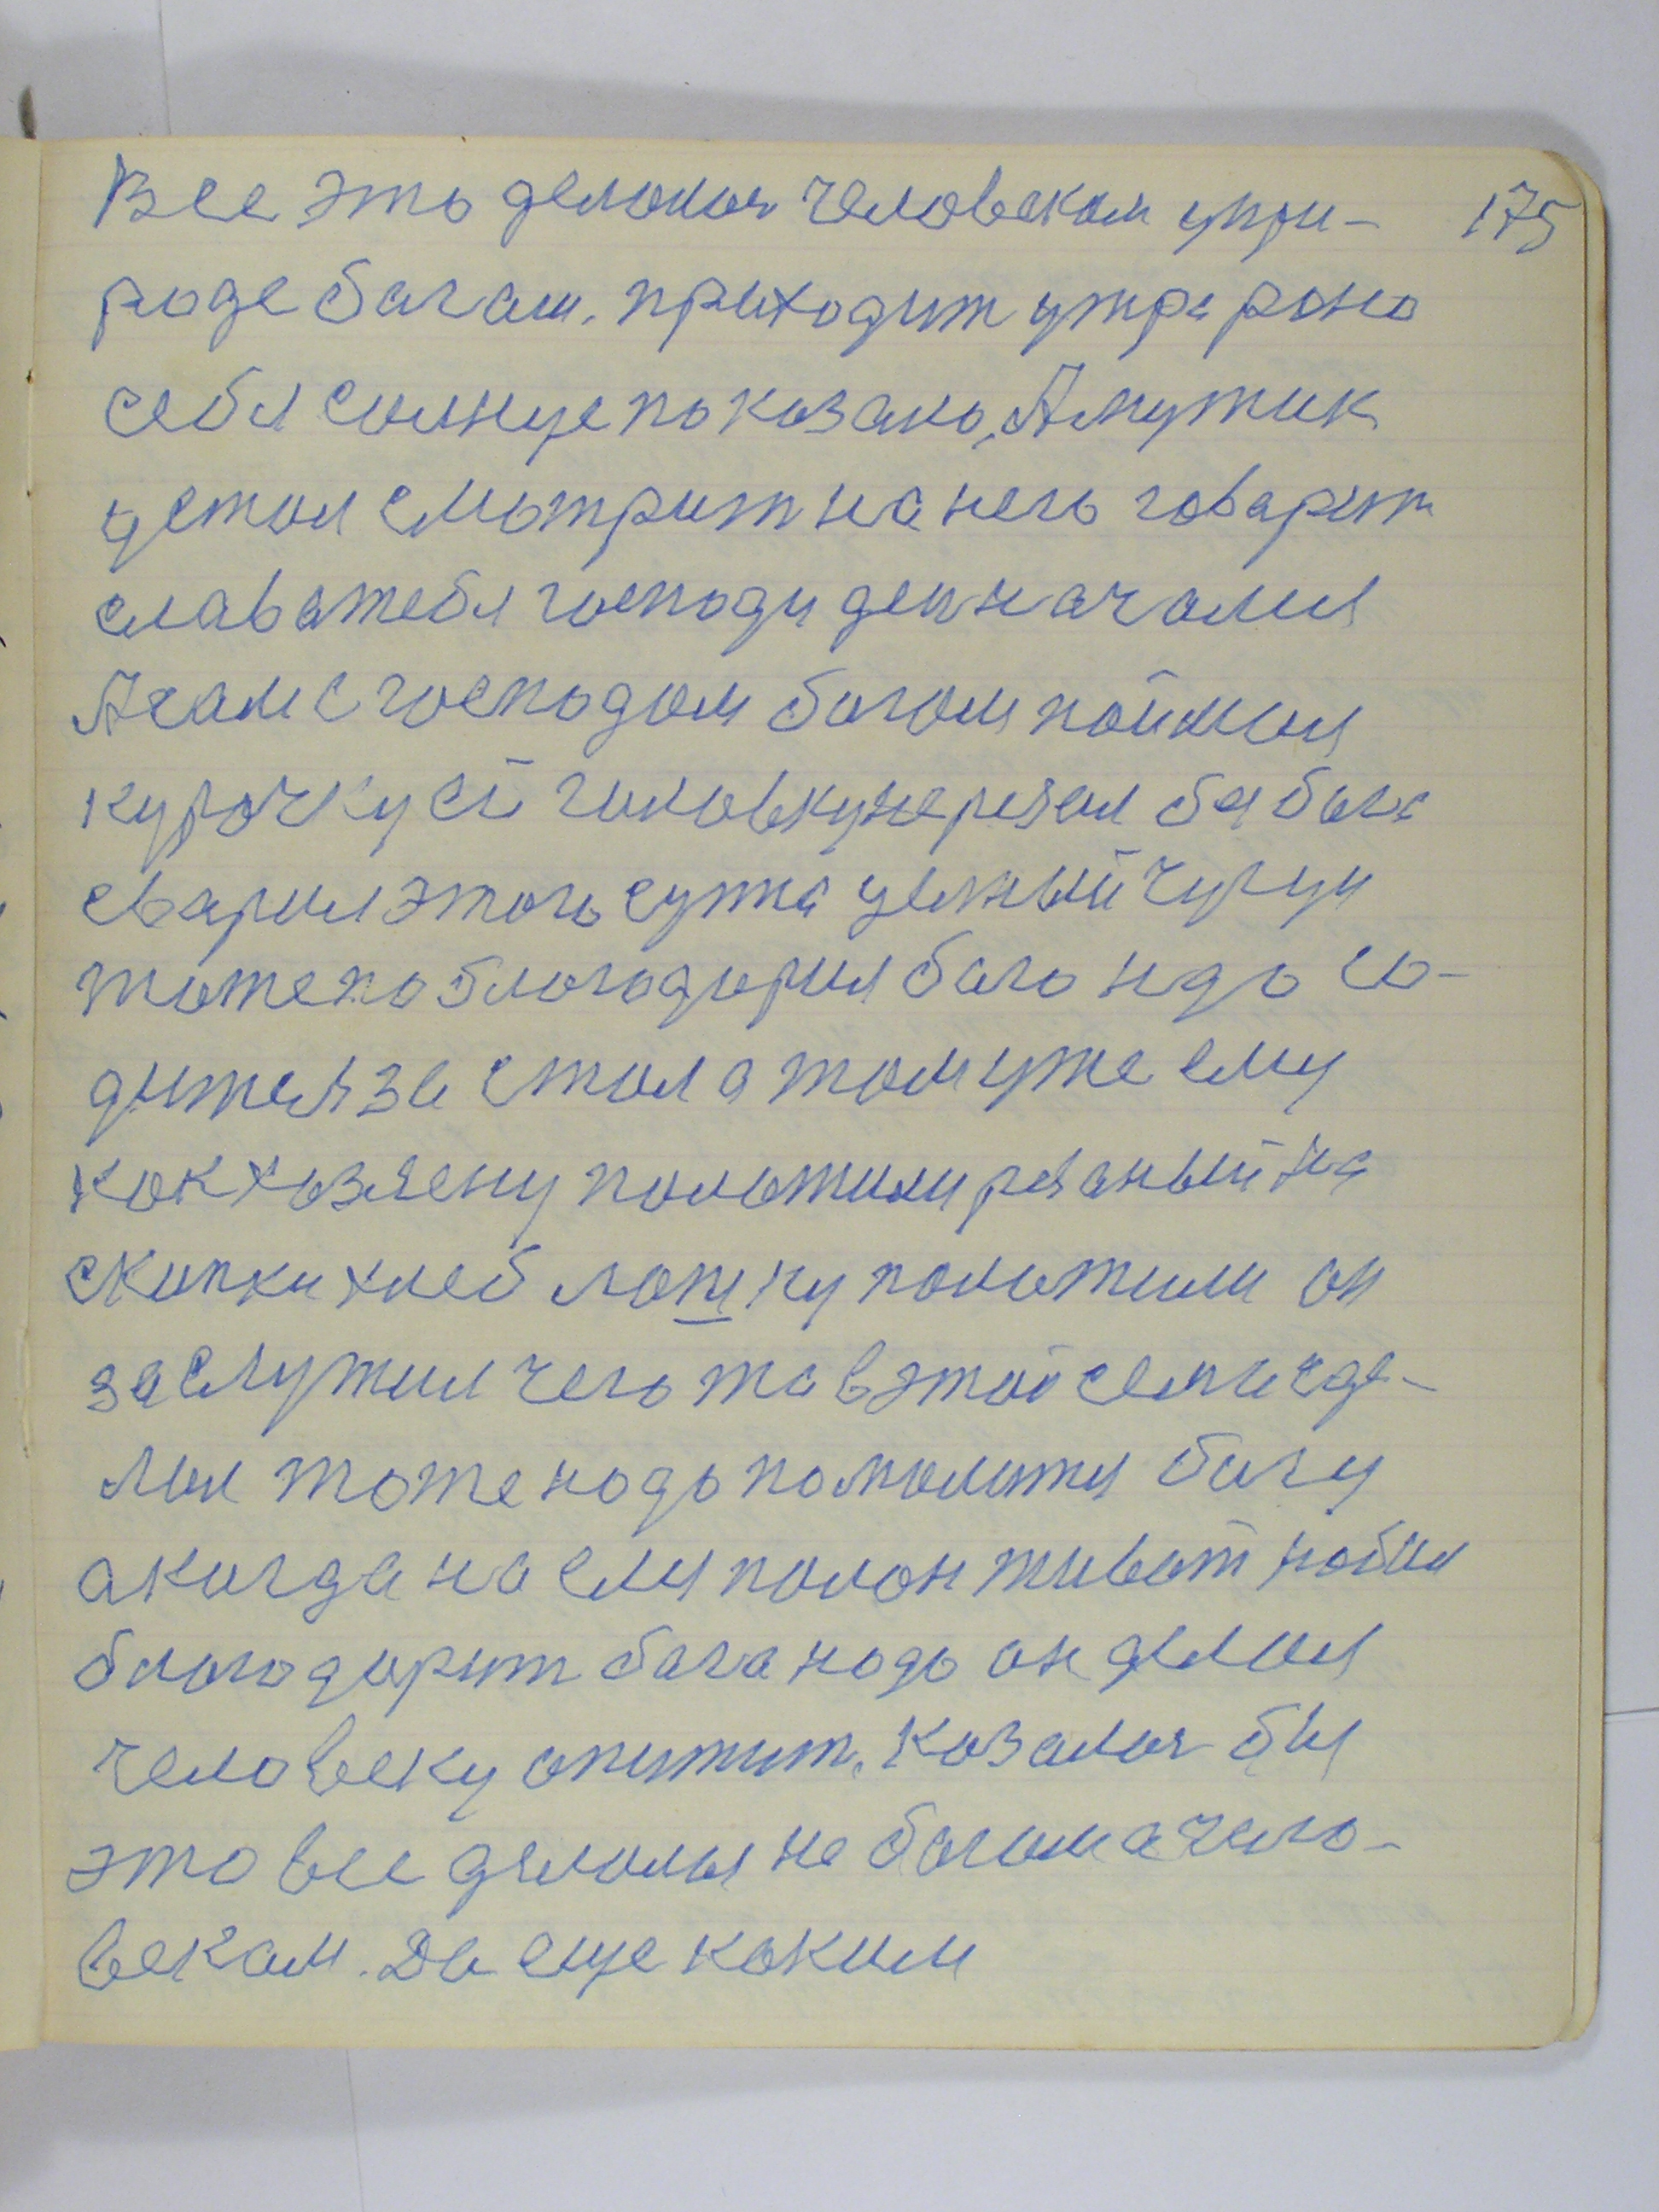 Все это делолоя человеком упри- 175
роде багам. приходит утра рана
себя солнце показало, А мужик
устал смотрит на него говарит
слава тебя господи ден начался
А сам с господом богом поймал
курочку ей головку нарезал ба бога
сварил этого супа целный чугун
тоже поблогодарил бога надо со-
дится за стол а том уже ему
как хозяену положили резаный на
скипки хлеб лошку положили он
заслужил чего то в этой семьи сде-
лал тоже надо помолится богу
а когда наелся полон живот набил
благодарит бога надо он делал
человеку опитит. Казалоя бы
это все делалоя не богом а чело-
векам. Да еще каким